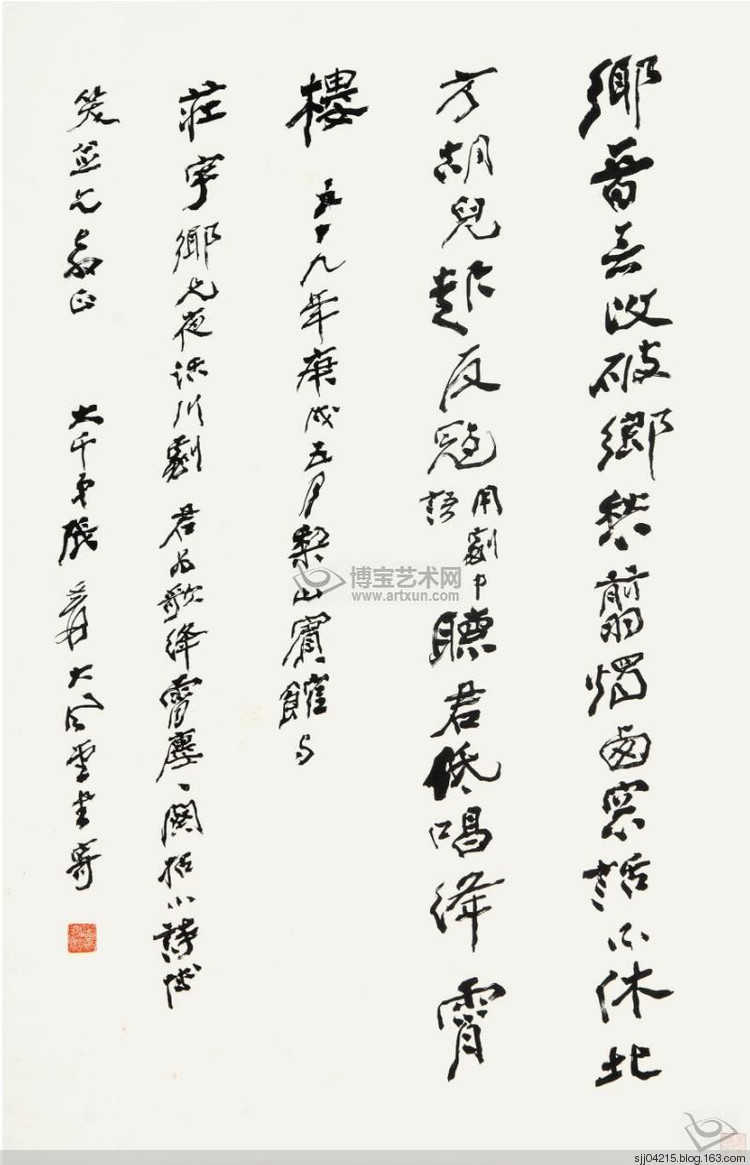 鄉音無改破鄉愁翦燭西窗話不休北
方胡兒起反寇用劇中語聽君低唱絳霄
樓 五十九年庚戌五月梨山賓館與
莊字鄉兄夜話川劇 君為歌絳霄闋拈小詩博
笑並乞教正 大千弟張爰大風堂寄
博宝艺术网
www.artxun.com
sjj04215.blog.163.com